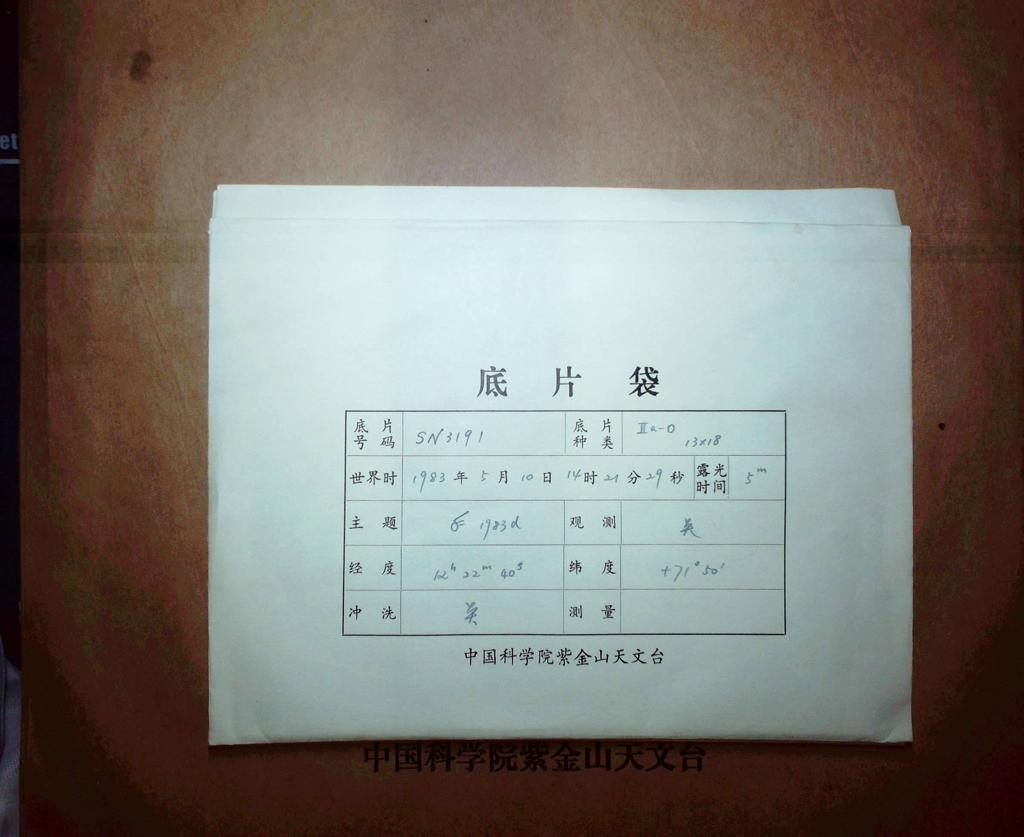 et
底片袋
底片号码 SN3191 底片种类 IIa-O 13×18
世界时 1983年5月10日14时21分29秒 露光时间 5ᵐ
主题 1983d 观测 吴
经度 12ʰ 22ᵐ 40ˢ 纬度 +71° 50'
冲洗 吴 测量
中国科学院紫金山天文台
中国科学院紫金山天文台